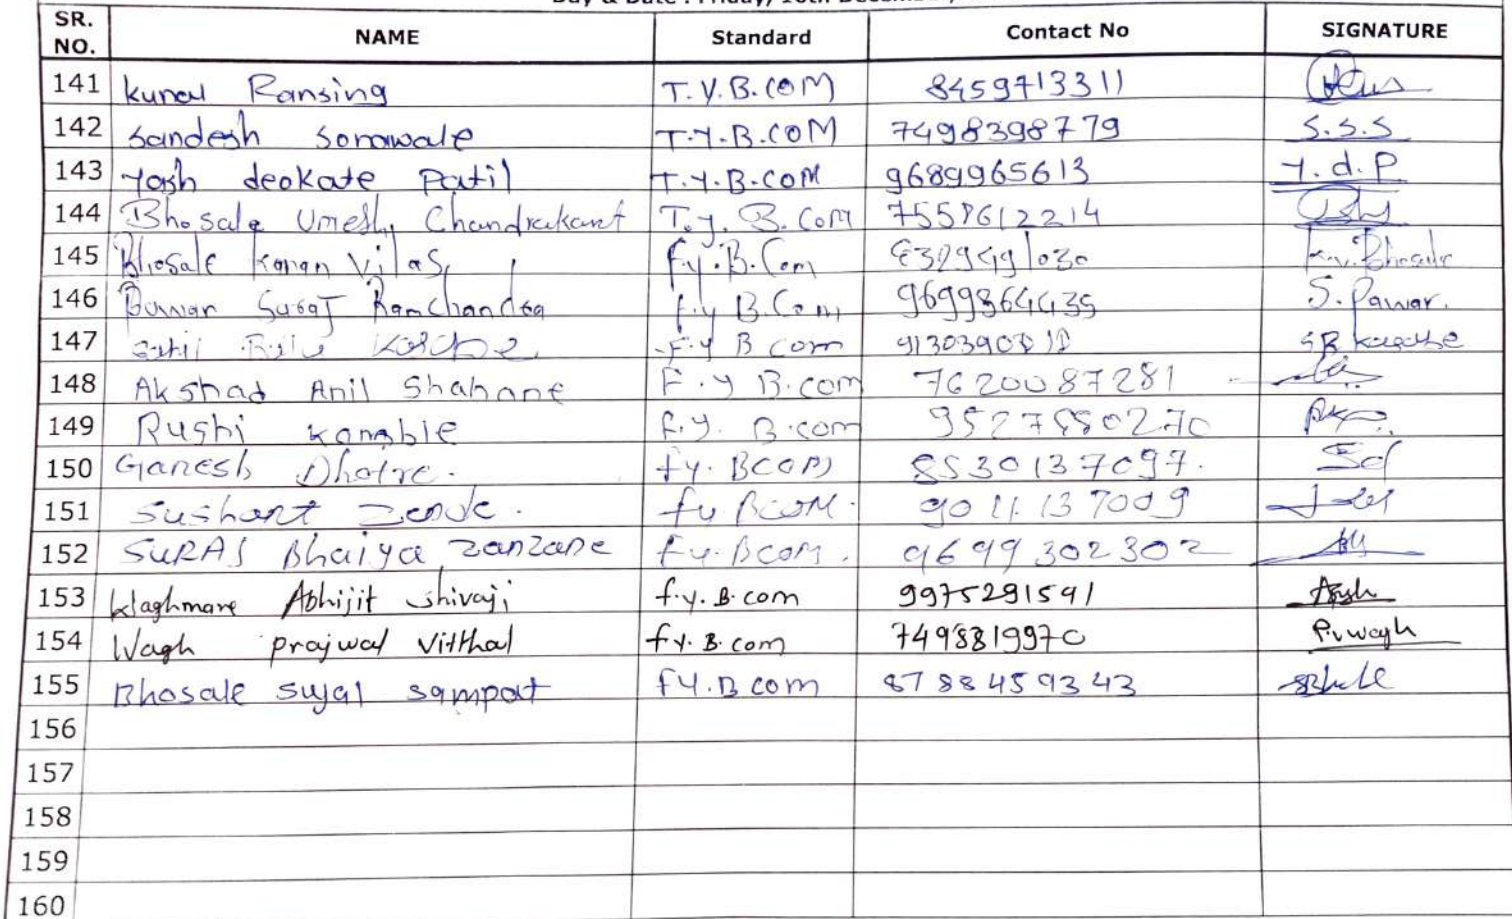 SR. NO. NAME Standard Contact No SIGNATURE
141 Kunal Ransing T.Y.B.COM 8459713311
142 Sandesh Sonawale T.Y.B.COM 7498398779 S.S.S
143 Yash deokate Patil T.Y.B.COM 9689965613 Y.d.P
144 Bhosale Umesh Chandrakant T.y. B.Com 7558612214
145 Bhosale Karan Vilas f.y.B.Com K.V.Bhosale
146 Pawar Suraj Ramchandra f.y B.Com 9699364435 S. Pawar.
147 F.y B com
148 Akshad Anil Shahane F.y B.com 7620087281
149 Rushi Kamble f.y. B.com
150 Ganesh Dhotre. fy. BCOM 8530137097.
151 Sushant Zende. fy BCOM. 9011137009
152 SURAJ Bhaiya zanzane fy.Bcom. 9699302302
153 Waghmare Abhijit shivaji f.y.B.com 9975291591
154 Wagh prajwal vitthal f.y.B.com 7498819970 P.v wagh
155 Bhosale sujal sampat fy.B com 8788459343
156
157
158
159
160